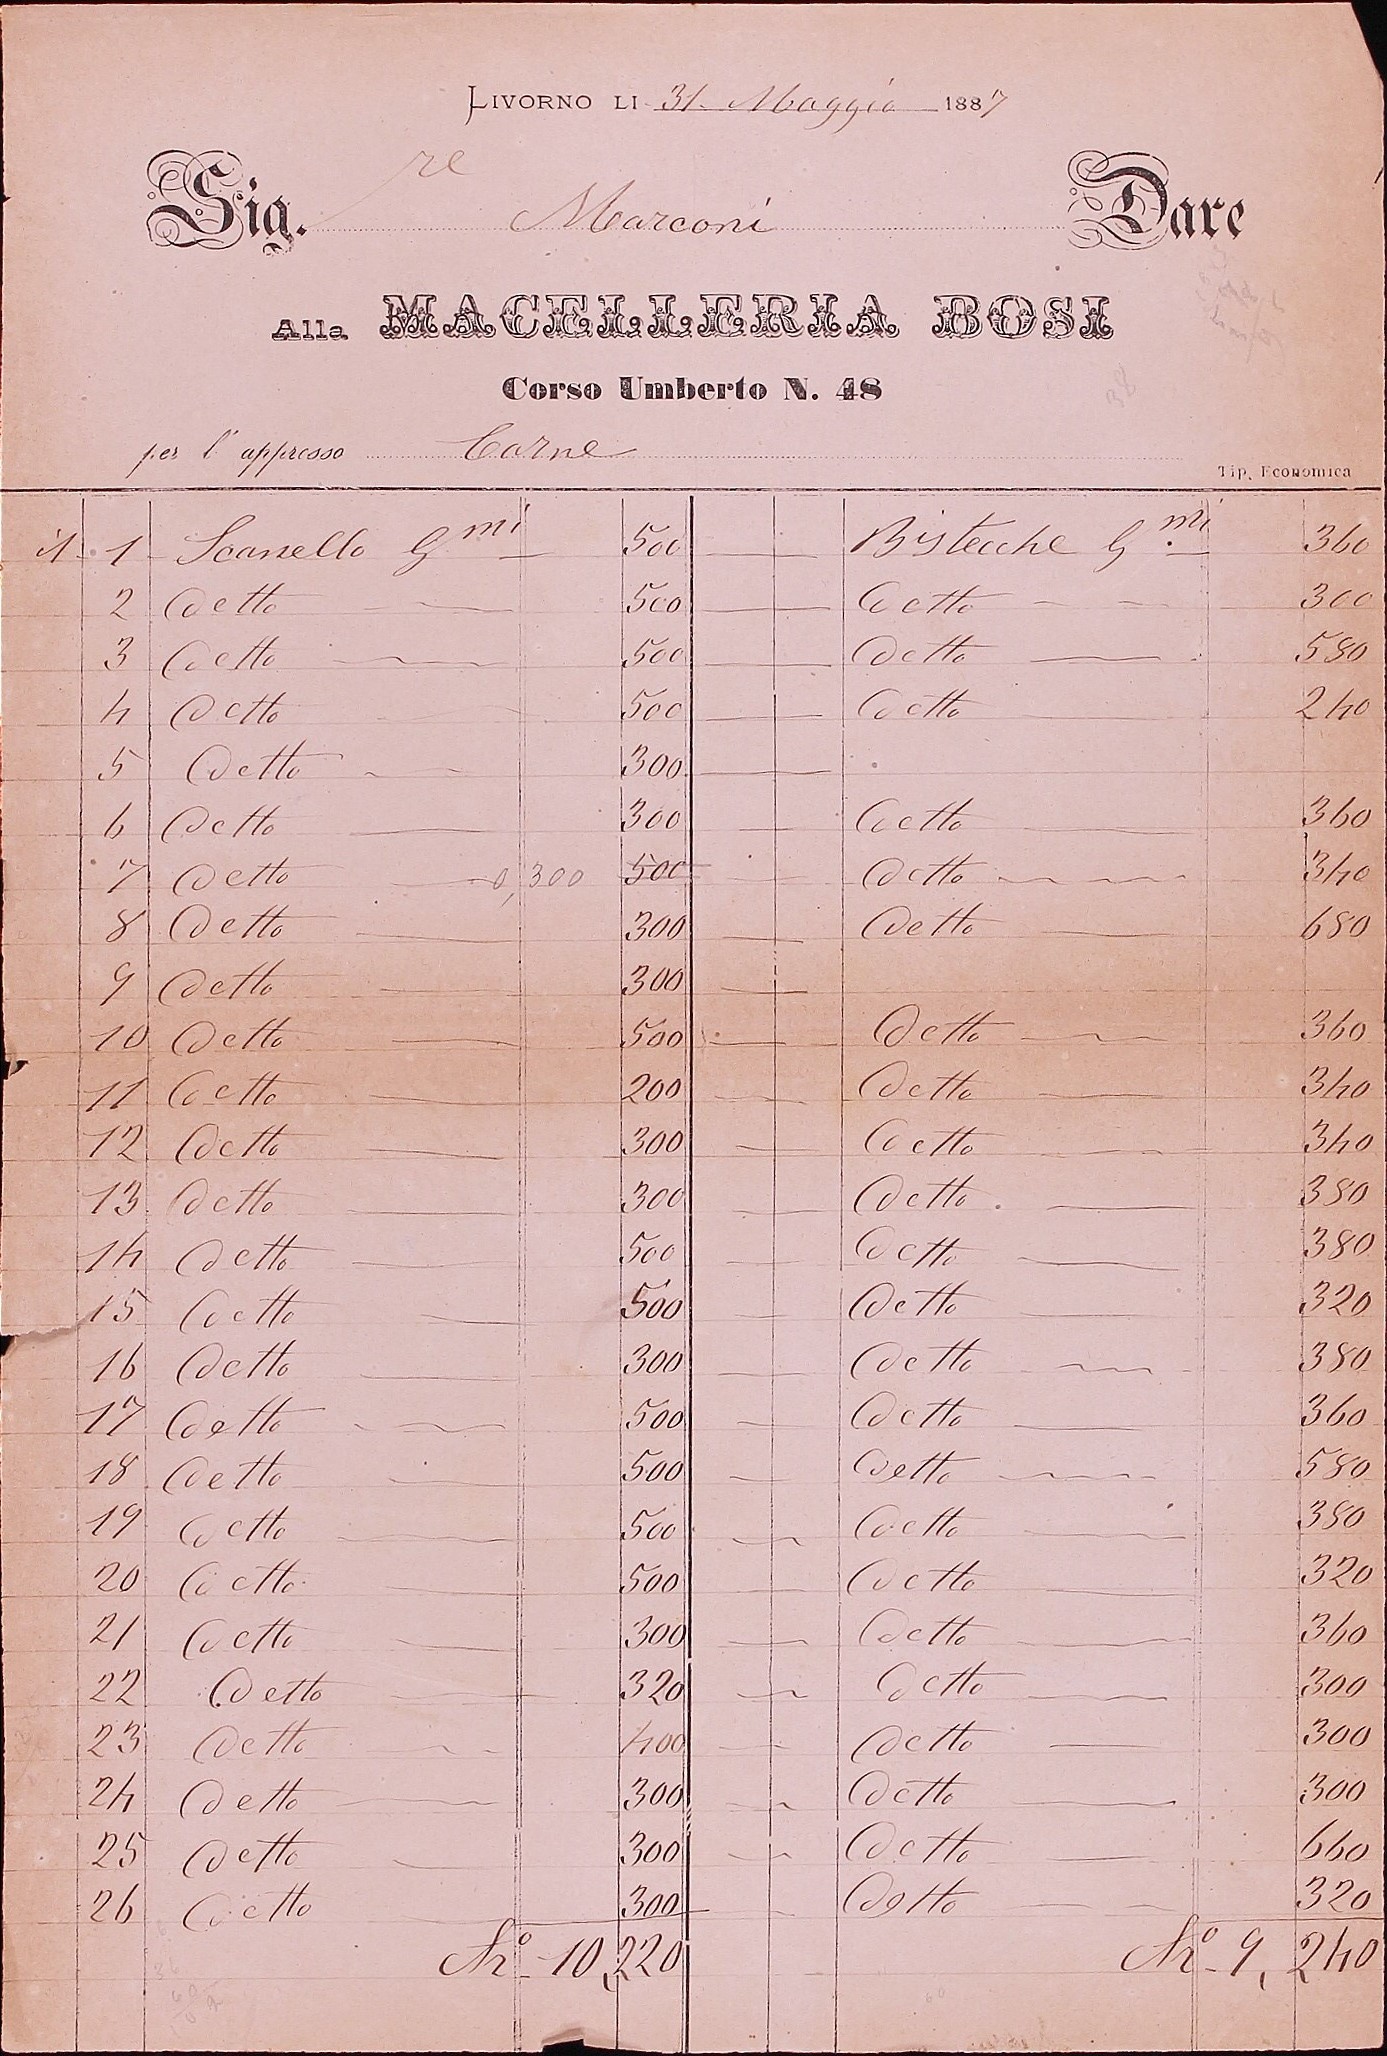 Livorno li 31. Maggio 1887
Sig.re Marconi Dare
Alla MACELLERIA BOSI
Corso Umberto N. 48
per l'appresso Carne
Tip. Economica
1 Scanello Gmi 500 Bistecche Gmi 360
2 Detto 500 Detto 300
3 Detto 500 Detto 580
4 Detto 500 Detto 240
5 Detto 300
6 Detto 300 Detto 360
7 Detto 0,300 500 Detto 340
8 Detto 300 Detto 680
9 Detto 300
10 Detto 500 Detto 360
11 Detto 200 Detto 340
12 Detto 300 Detto 340
13 Detto 300 Detto 380
14 Detto 500 Detto 380
15 Detto 500 Detto 320
16 Detto 300 Detto 380
17 Detto 500 Detto 360
18 Detto 500 Detto 580
19 Detto 500 Detto 380
20 Detto 500 Detto 320
21 Detto 300 Detto 360
22 Detto 320 Detto 300
23 Detto 400 Detto 300
24 Detto 300 Detto 300
25 Detto 300 Detto 660
26 Detto 300 Detto 320
10,220 9,240